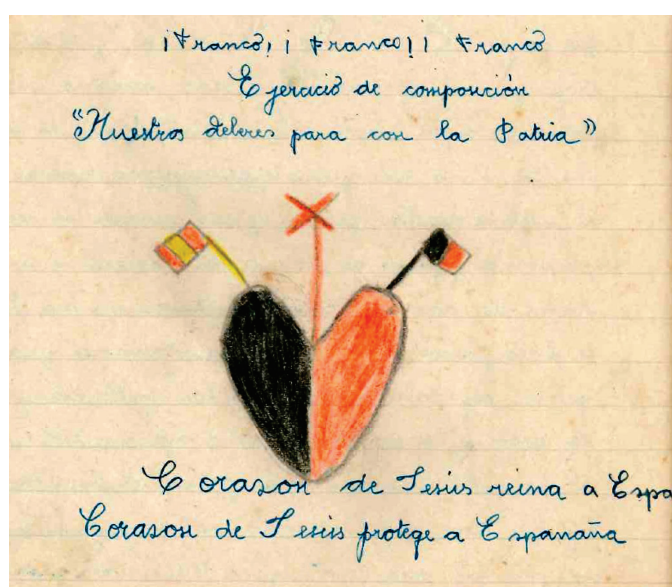 ¡Franco! ¡ Franco! ¡ Franco
Ejercicio de composición
"Nuestros deberes para con la Patria"
Corason de Jesús reina a Espa
Corason de Jesus protege a Espanaña